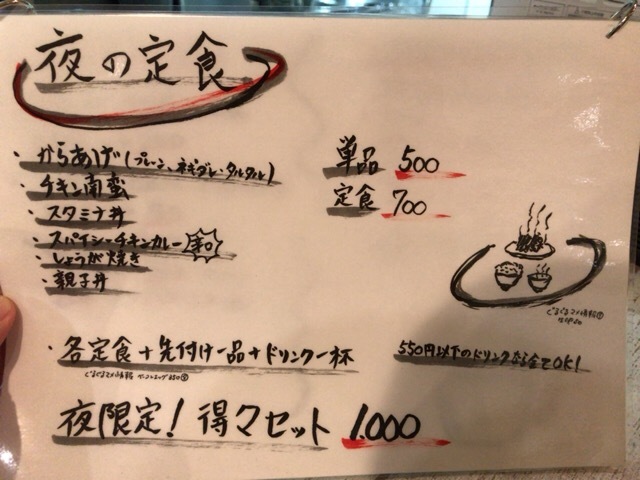 夜の定食
・からあげ(プレーン、ネギダレ・タルタル)
・チキン南蛮
・スタミナ丼
・スパイシーチキンカレー 辛口
・しょうが焼き
・親子丼
単品 500
定食 700
・各定食+先付け一品+ドリンク一杯
550円以下のドリンクなら全てOK!
夜限定! 得々セット 1.000